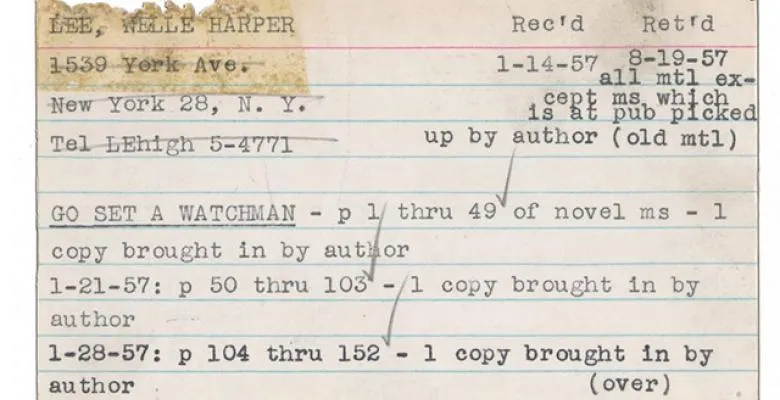 LEE, NELLE HARPER Rec'd Ret'd
1539 York Ave. 1-14-57 8-19-57
all mtl ex-
New York 28, N. Y. cept ms which
is at pub picked
Tel LEhigh 5-4771 up by author (old mtl)
GO SET A WATCHMAN - p 1 thru 49 of novel ms - 1
copy brought in by author
1-21-57: p 50 thru 103 - 1 copy brought in by
author
1-28-57: p 104 thru 152 - 1 copy brought in by
author (over)